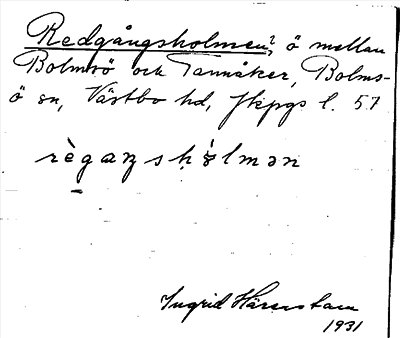 Redgångsholmen?, ö mellan
Bolmsö och Tannåker, Bolms-
ö sn, Västbo hd, Jkpgs l. 57
règaŋshòlmən
Ingrid Härenstam
1931